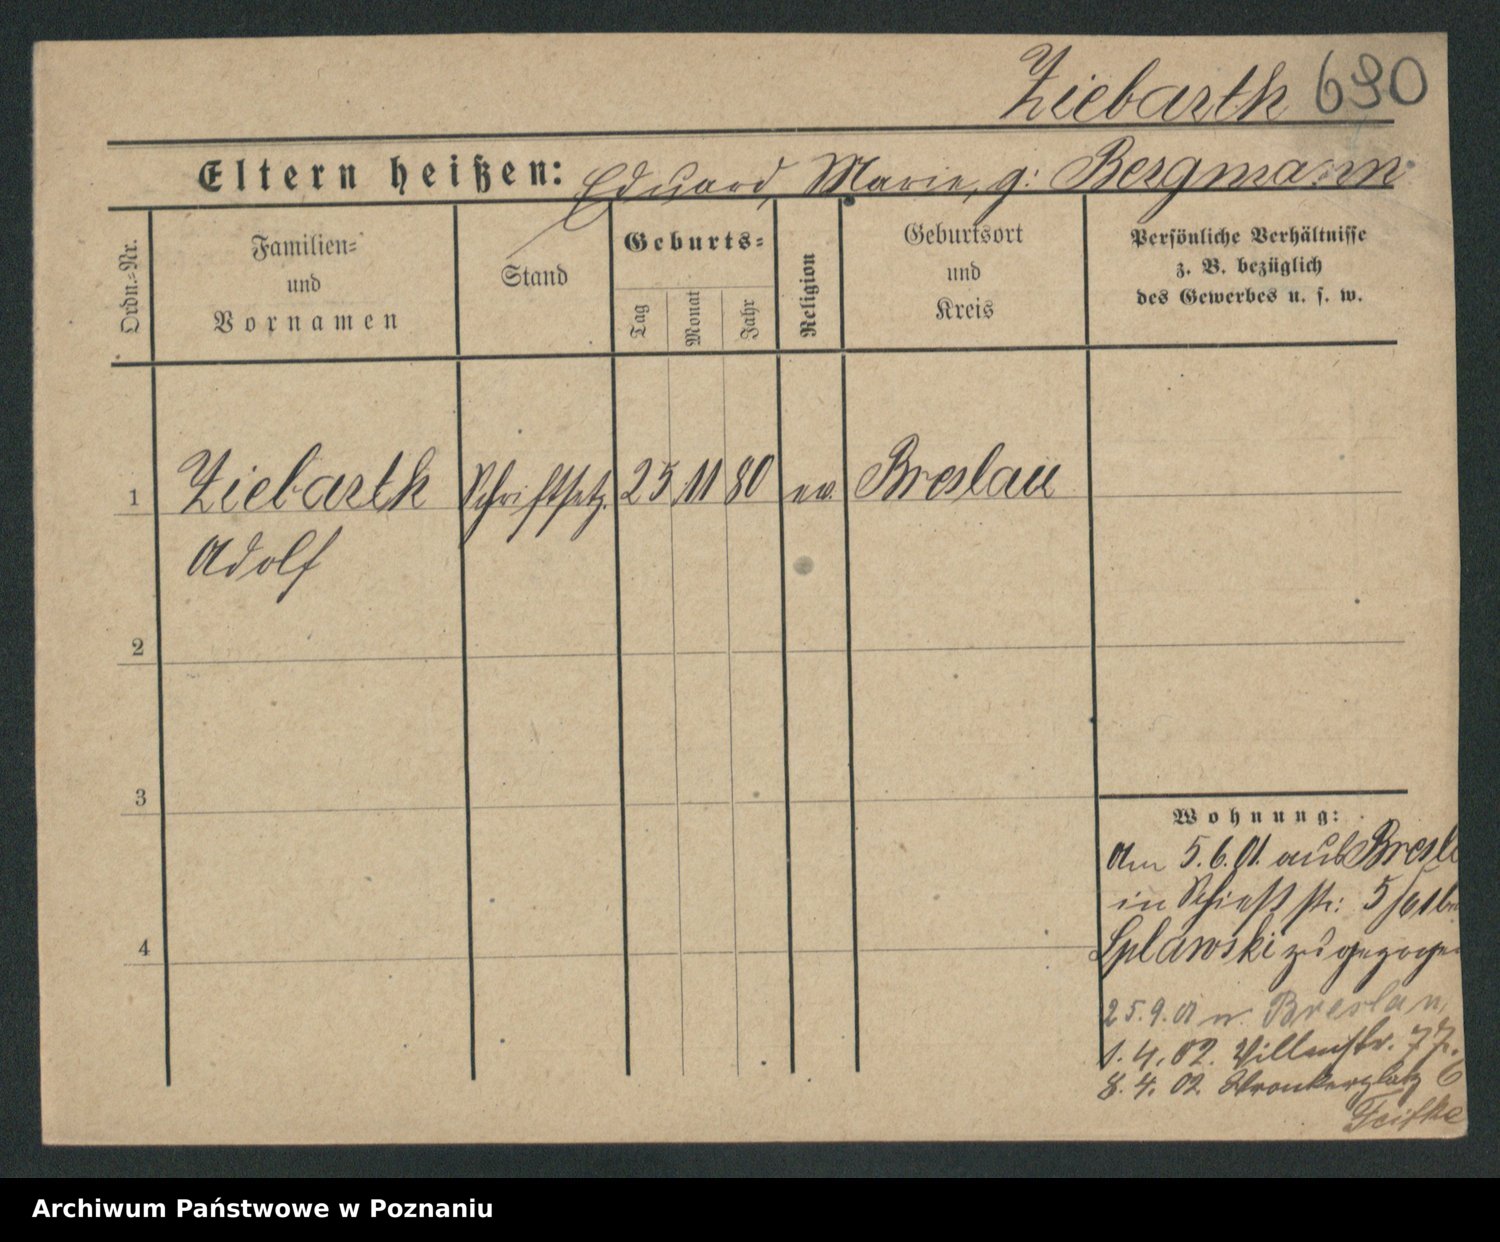 Ziebarth 690
Eltern heißen: Eduard, Marie, g: Bergmann
Ordn.=Nr.
Familien=
und
Vornamen
Stand
Geburts=
Tag
Monat
Jahr
Religion
Geburtsort
und
Kreis
Persönliche Verhältnisse
z. B. bezüglich
des Gewerbes u. s. w.
1 Ziebarth Schriftsetz. 25 11 80 ev. Breslau
Adolf
2
3
4
Wohnung:
Am 5.6.01. aus Bresl
in Schießstr: 5/61 b
Splawski zugezoge
25.9.01 n. Breslau,
1.4.02. Villenstr. 7
8.4.02. Wronkerplatz 6
Archiwum Państwowe w Poznaniu